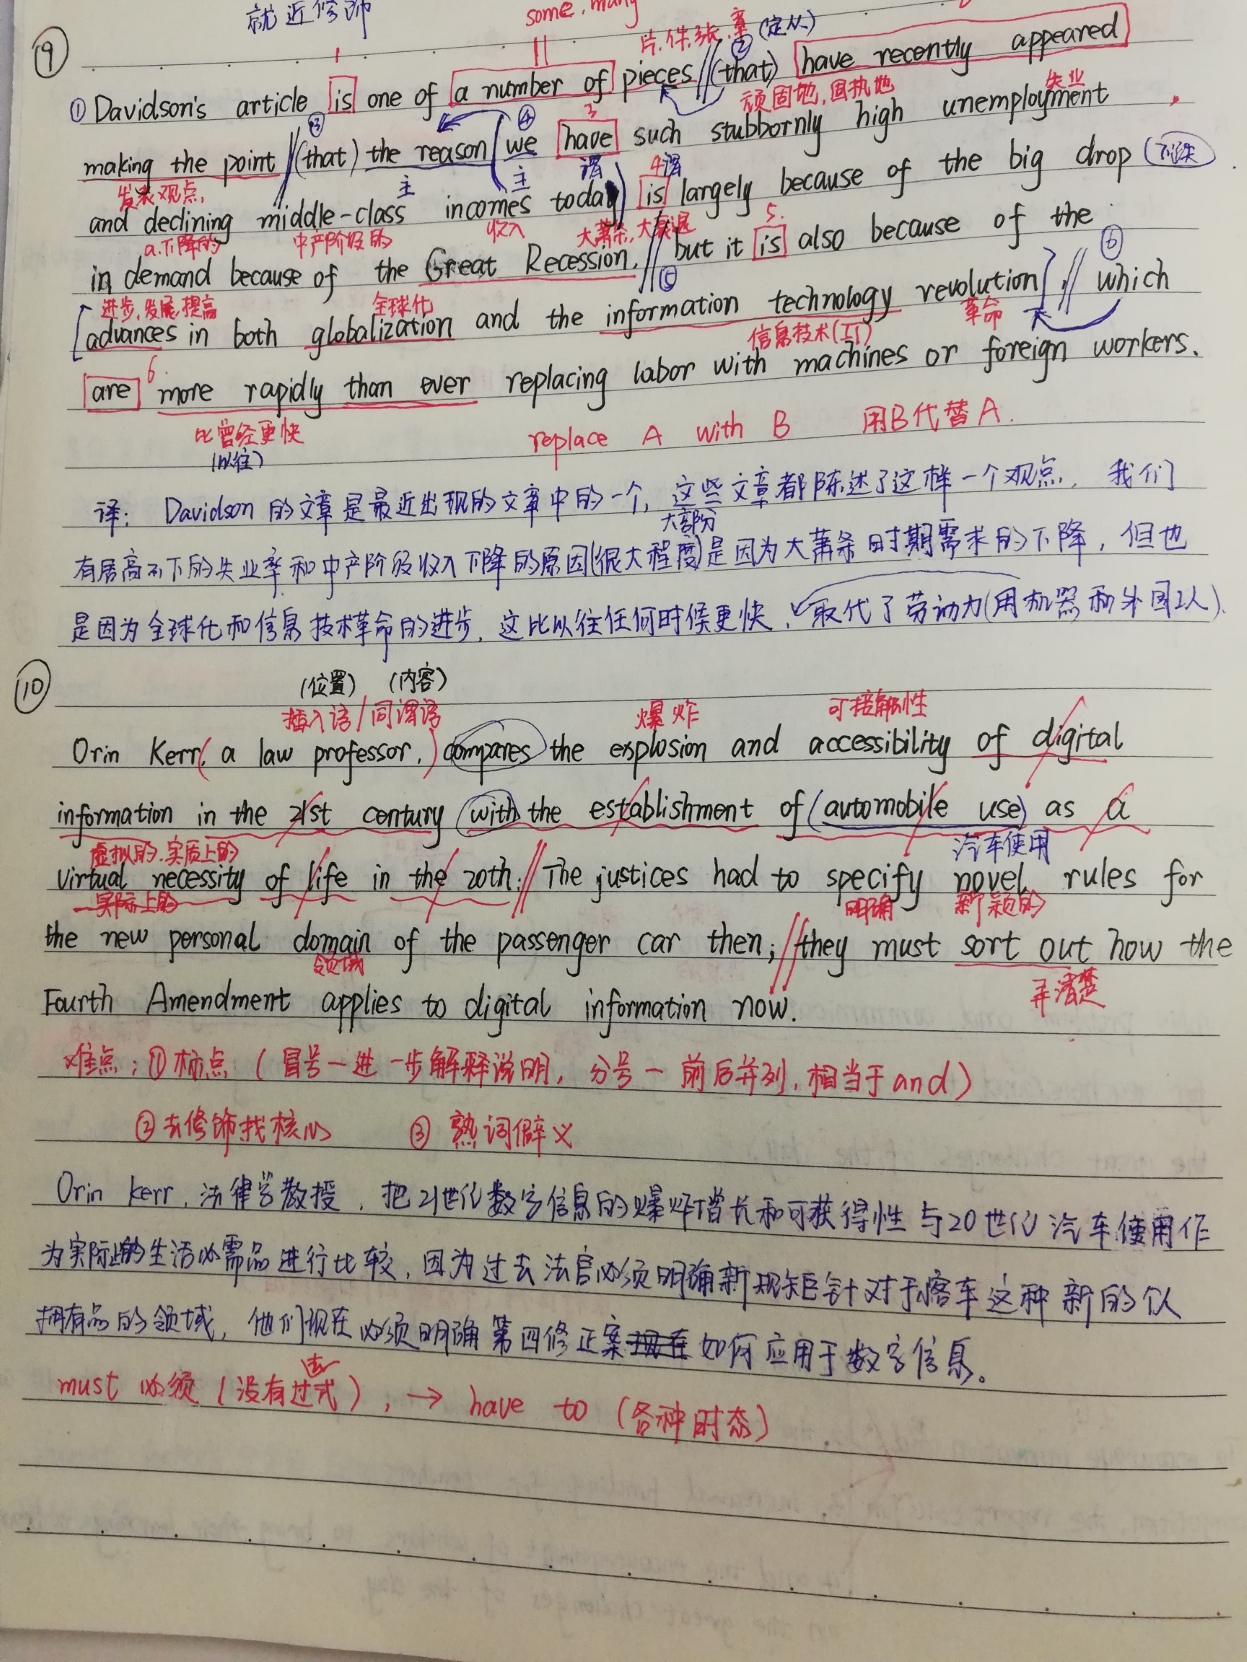 就近修饰
some, many
⑨
片.件.张.章 (定从)
① Davidson's article is one of a number of pieces // ② (that) have recently appeared
顽固地,固执地
失业
making the point // ③ (that) the reason ④ we have such stubbornly high unemployment
发表观点,
主
主
谓
4谓
and declining middle-class incomes today is largely because of the big drop (下跌)
a.下降的
中产阶级的
收入
大萧条,大衰退
in demand because of the Great Recession, // ⑤ but it is also because of the
进步,发展,提高
全球化
advances in both globalization and the information technology revolution // ⑥ which
信息技术(IT)
革命
are more rapidly than ever replacing labor with machines or foreign workers.
比曾经更快
(以往)
replace A with B 用B代替A.
译: Davidson 的文章是最近出现的文章中的一个, 这些文章都陈述了这样一个观点, 我们
大部分
有居高不下的失业率和中产阶级收入下降的原因(很大程度)是因为大萧条时期需求的下降, 但也
是因为全球化和信息技术革命的进步, 这比以往任何时候更快, 取代了劳动力(用机器和外国工人).
⑩
(位置) (内容)
插入语/同谓语
爆炸
可接触性
Orin Kerr ( a law professor, ) compares the explosion and accessibility of digital
information in the 21st century with the establishment of (automobile use) as a
虚拟的.实质上的
汽车使用
virtual necessity of life in the 20th: // The justices had to specify novel rules for
实际上的
明确
新颖的
the new personal domain of the passenger car then; // they must sort out how the
领域
弄清楚
Fourth Amendment applies to digital information now.
难点: ① 标点 ( 冒号一进一步解释说明, 分号一前后并列, 相当于and)
② 去修饰找核心 ③ 熟词僻义
Orin kerr, 法律学教授, 把21世纪数字信息的爆炸增长和可获得性与20世纪汽车使用作
为实际上的生活必需品进行比较, 因为过去法官必须明确新规矩针对于客车这种新的似
拥有品的领域, 他们现在必须明确第四修正案现在如何应用于数字信息。
去
must 必须 (没有过式), → have to (各种时态)